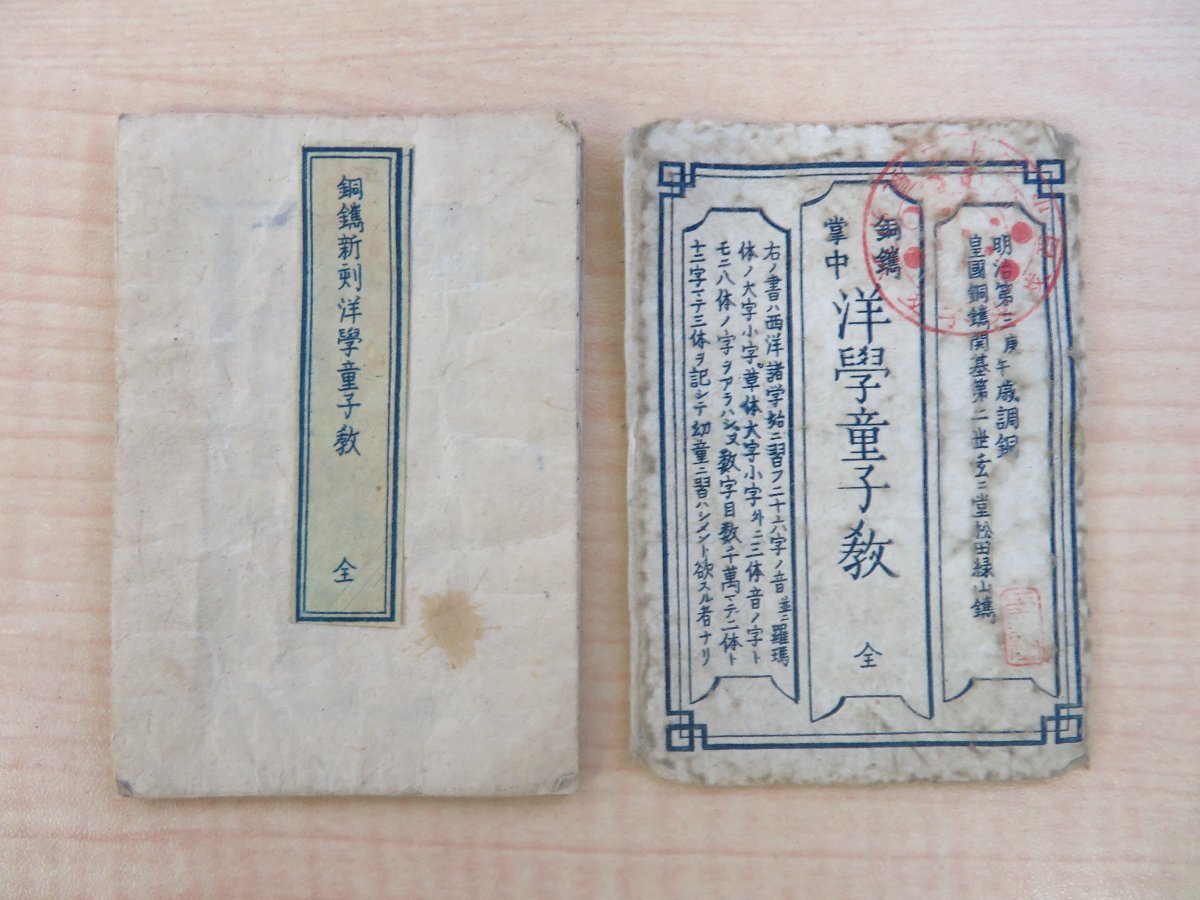 銅鐫新刻洋學童子教 全
明治第三庚午歳調銅
皇國銅鐫開基第二世玄々堂松田緑山鐫
銅鐫
掌中
洋學童子教 全
右ノ書ハ西洋諸学始ニ習フ二十六字ノ音並ニ羅瑪
体ノ大字小字草体大字小字外ニ三体音ノ字ト
モニ八体ノ字ヲアラハシ又数字目数千萬マデ二体ト
十二字マデ三体ヲ記シテ幼童ニ習ハシメント欲スル者ナリ